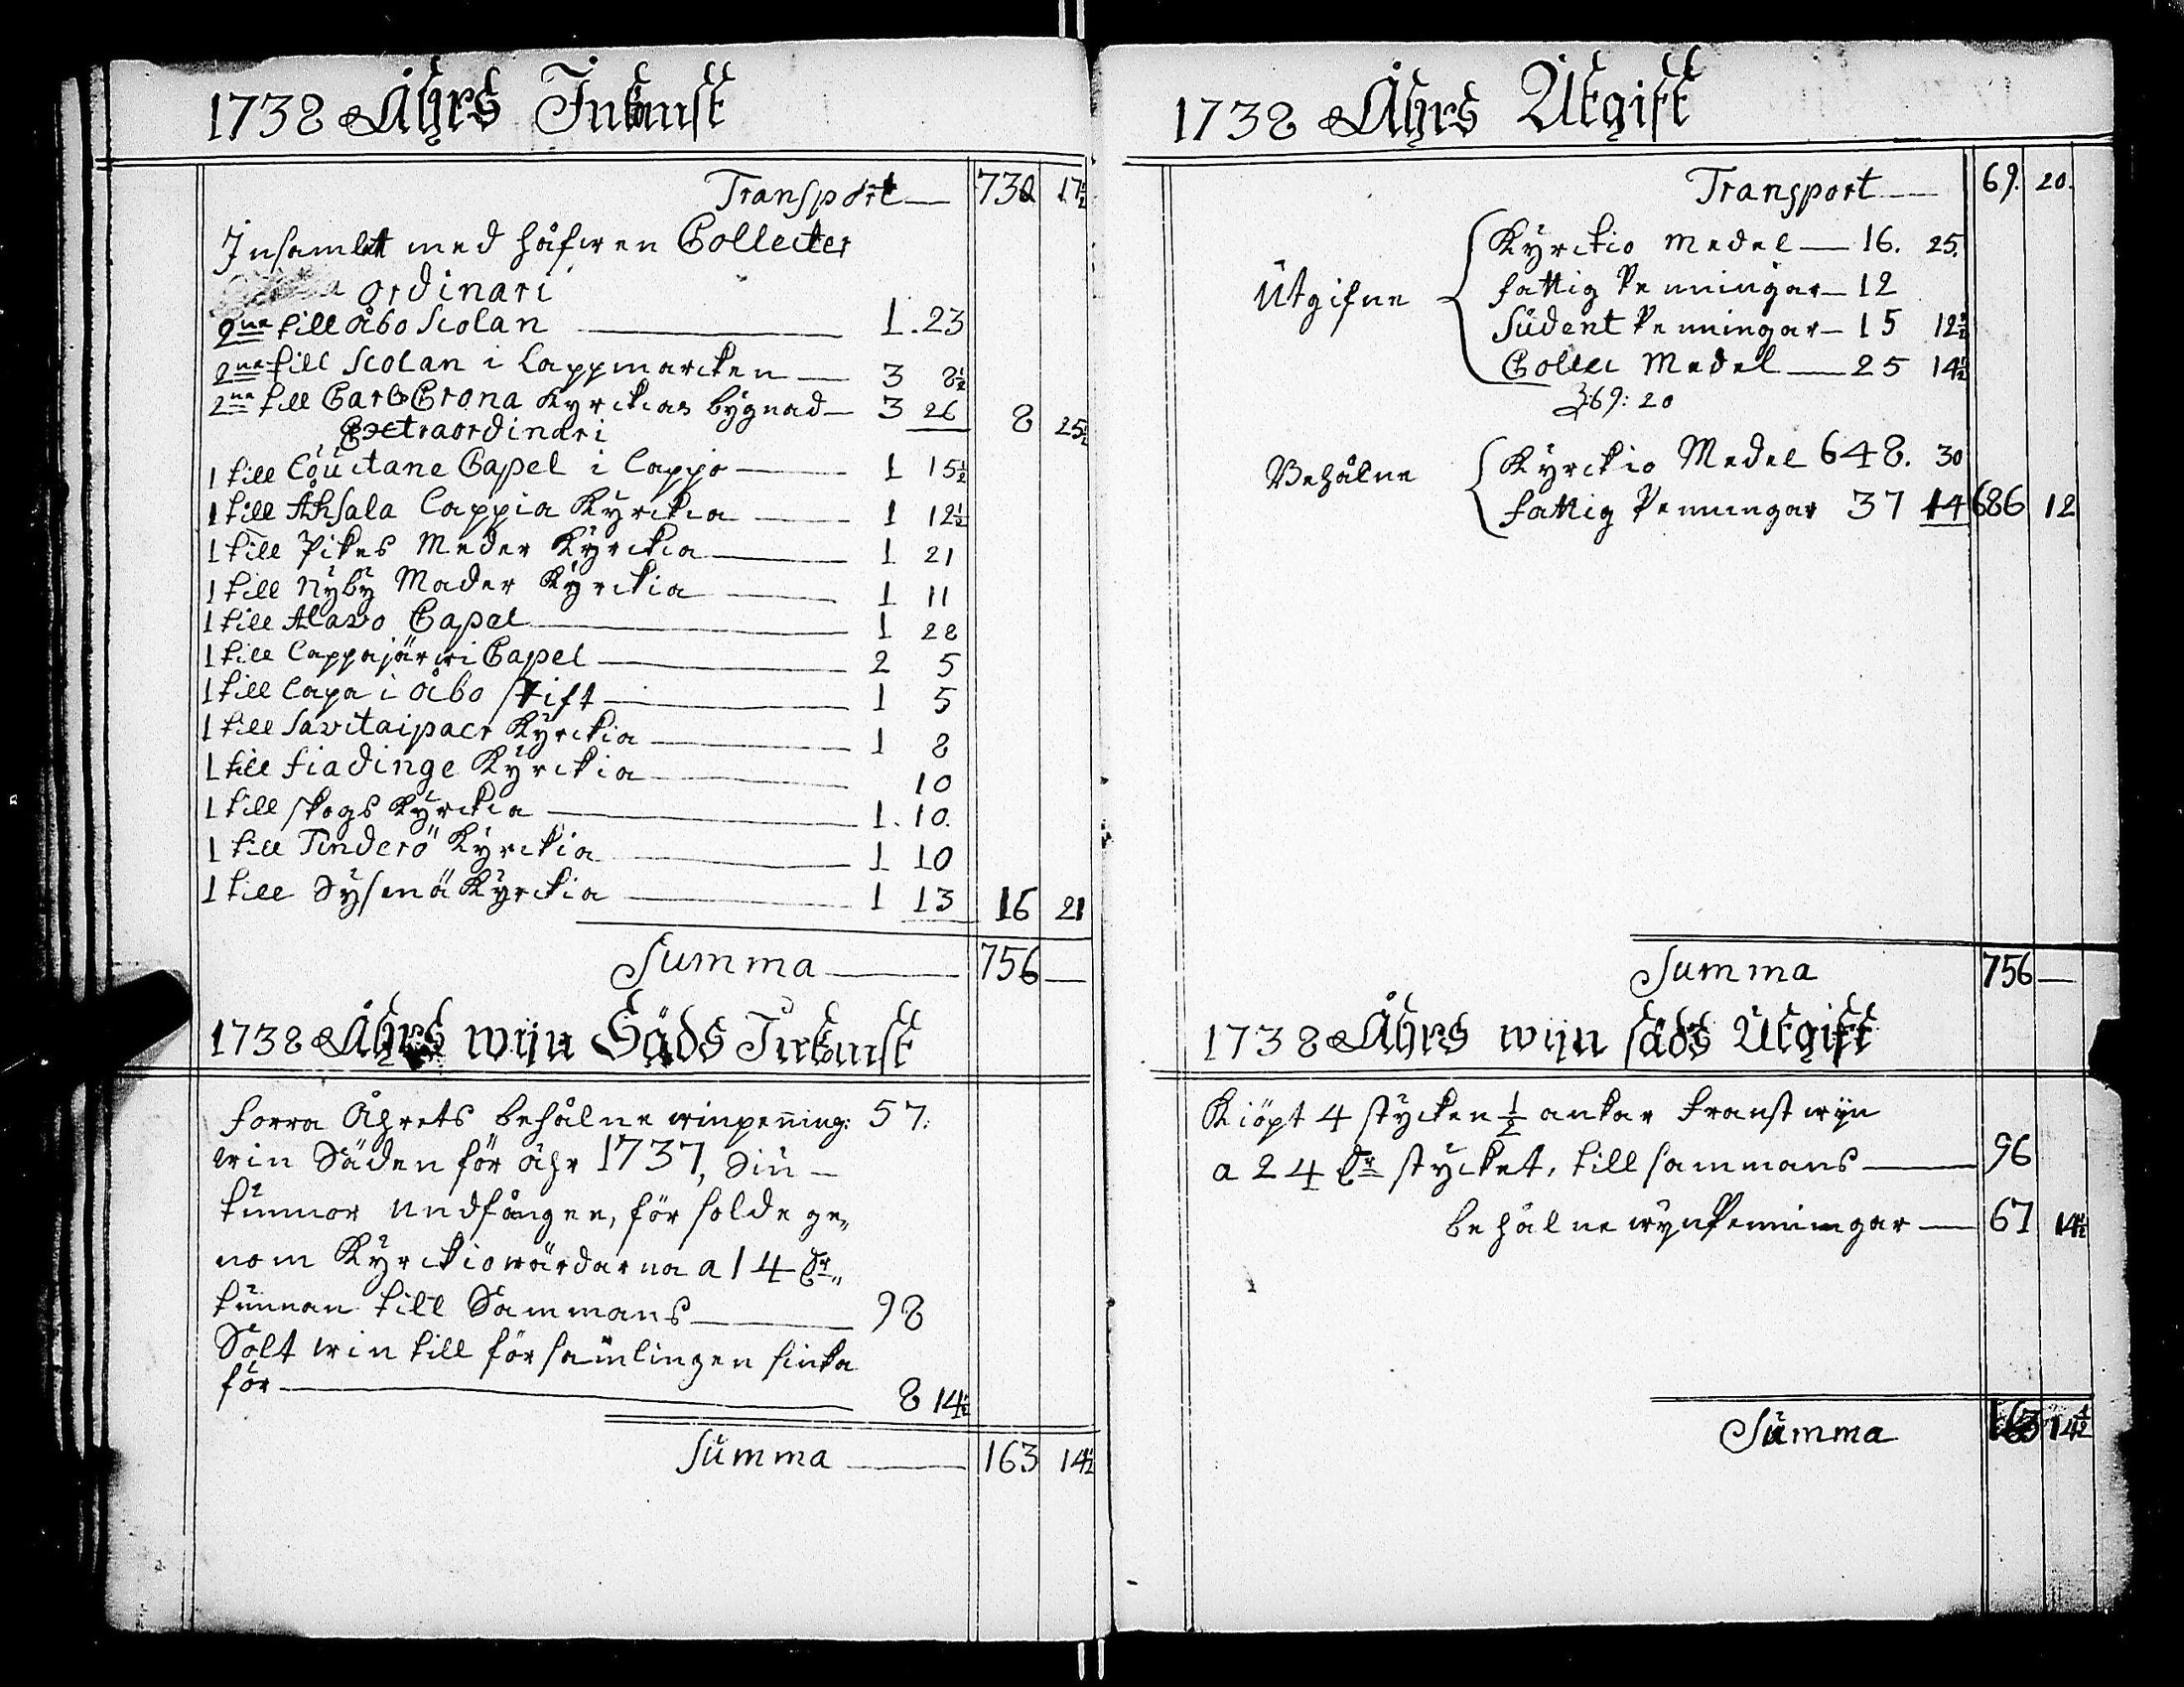 1738 Åhrs Inkunst
Transport 730 17½
Insamlat med håfwen Collecter
ordinari
2ne till Åbo Scolan 1. 23
2ne till Scolan i Lappmarcken 3 8½
2ne till Carls Crona Kyrckias bygnad 3 26 8 25½
Extraordinari
1 till Capel i Lappo 1 15½
1 till Åhsala Lappia Kyrckia 1 12½
1 till Pikes Meder Kyrckia 1 21
1 till Nyby Mader Kyrckia 1 11
1 till Alavo Capel 1 28
1 till Lappajärwi Capel 2 5
1 till Lapa i Åbo stift 1 5
1 till Savitaipaer Kyrckia 1 8
1 till fiadinge Kyrckia 10
1 till skogs Kyrckia 1. 10.
1 till Tinderö Kyrckia 1 10
1 till Sysmä Kyrckia 1 13 16 21
Summa 756 —
1738 Åhrs wijn Säds Inkunst
forra Åhrets behålne winpening: 57:
win Säden för åhr 1737, Siu
tunnor undfången, för solde ge„
nom Kyrckiowärdarna a 14 dr„
tunnan till Sammans 98
Sålt win till församlingen siuka
för 8 14½
Summa 163 14½
1738 Åhrs Utgift
Transport 69. 20.
Utgifne
Kyrckio medel 16. 25.
fattig Penningar 12
Student Penningar 15 12½
Collec Medel 25 14½
69: 20
Behålne
Kyrckio Medel 648. 30
fattig Penningar 37 14 686 12
Summa 756 —
1738 Åhrs wijn säds Utgift
Kiöpt 4 stycken ½ ankar franst wijn
a 24 dr stycket, till sammans 96
behålne wyn Penningar 67 14½
Summa 163 14½